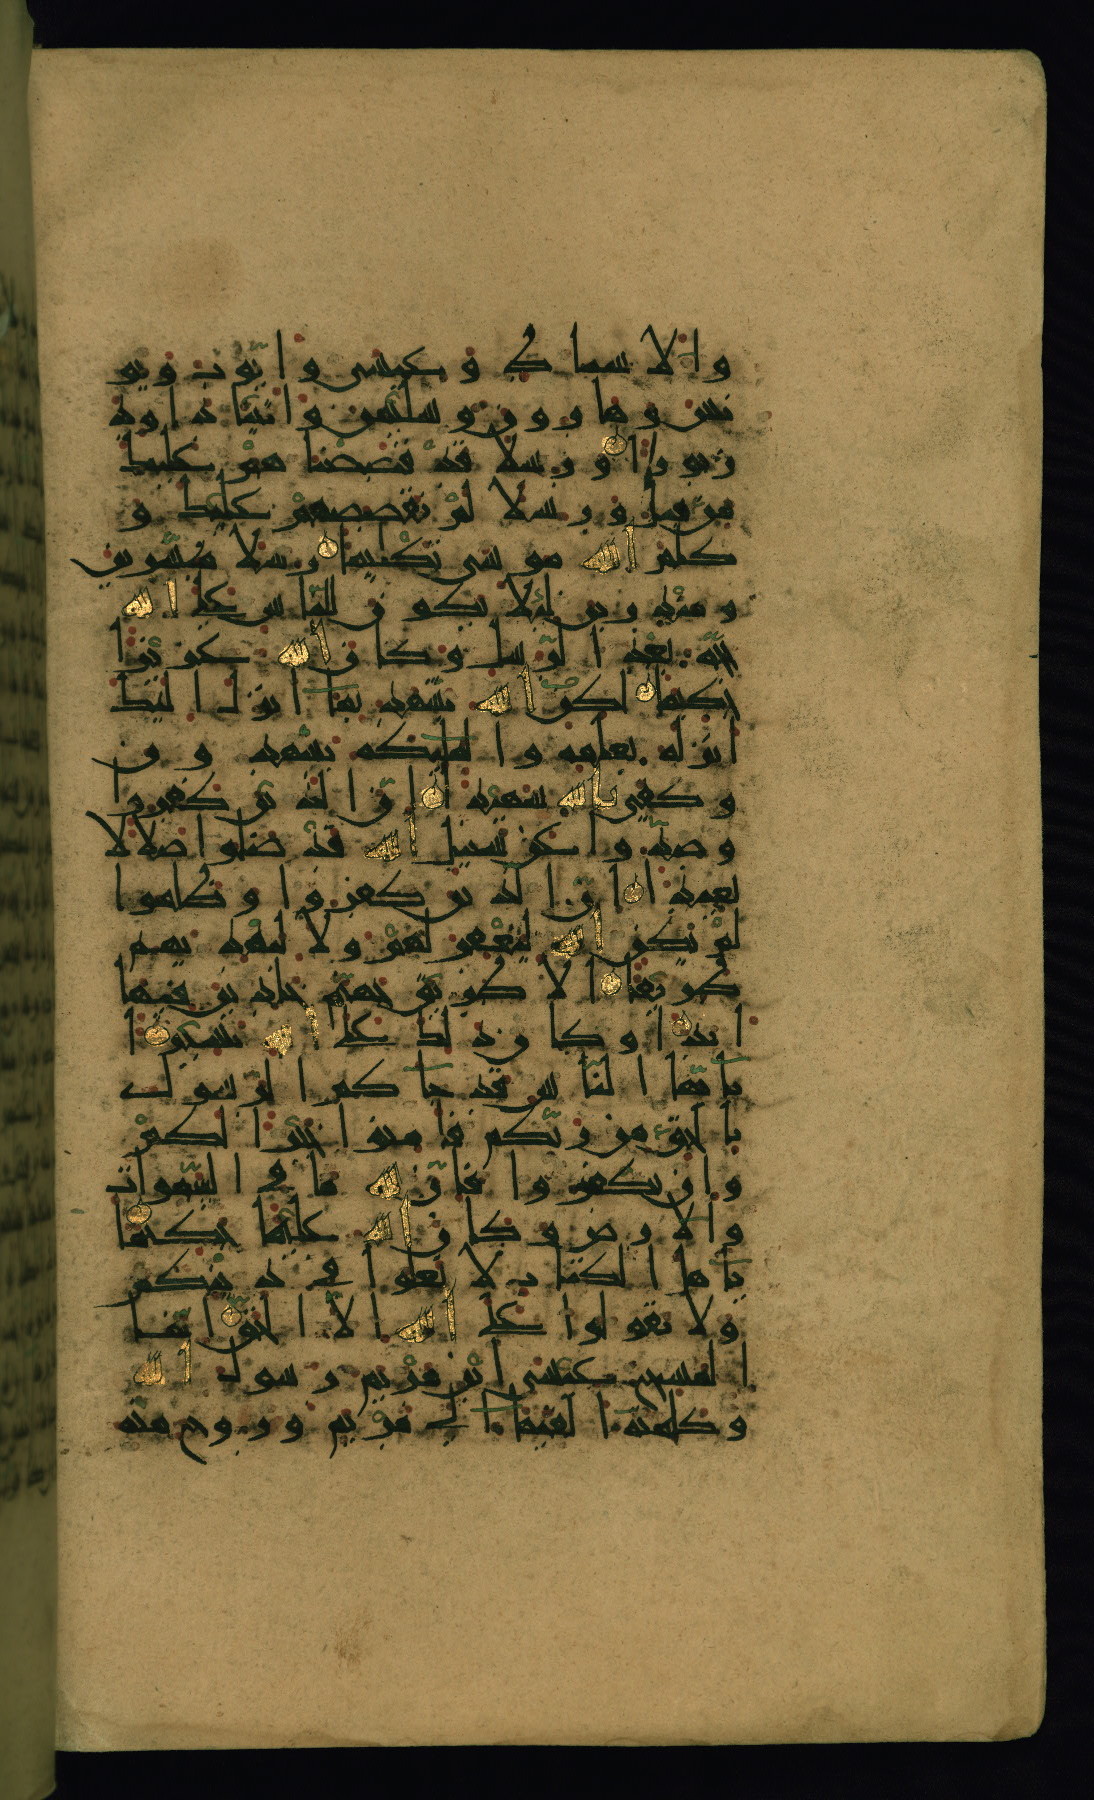 والاسباط وعيسى وايوب ويو
نس وهارون وسليمن واتينا داود
زبورا ورسلا قد قصصناهم عليك
من قبل ورسلا لم نقصصهم عليك و
كلم الله موسى تكليما رسلا مبشرين
ومنذرين لئلا يكون للناس على الله
حجة بعد الرسل وكان الله عزيزا
حكيما لكن الله يشهد بما انزل اليك
انزله بعلمه والمليكة يشهدون
وكفى بالله شهيدا ان الذين كفروا
وصدوا عن سبيل الله قد ضلوا ضلالا
بعيدا ان الذين كفروا وظلموا
لم يكن الله ليغفر لهم ولا ليهديهم
طريقا الا طريق جهنم خالدين فيها
ابدا وكان ذلك على الله يسيرا
يايها الناس قد جاكم الرسول
بالحق من ربكم فامنوا خيرا لكم
وان تكفروا فان لله ما في السموات
والارض وكان الله عليما حكيما
ياهل الكتاب لا تغلوا في دينكم
ولا تقولوا على الله الا الحق انما
المسيح عيسى ابن مريم رسول الله
وكلمته القيها الى مريم وروح منه